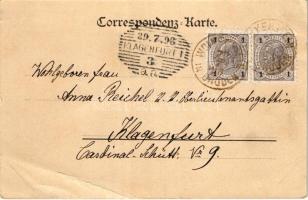 Correspondenz-Karte.
29.7.98
KLAGENFURT 1
3
1 1
Wohlgeboren Frau
Anna Reichel k. k. Oberlieutenantsgattin
Klagenfurt
Cardinal-Schütt Nr 9.